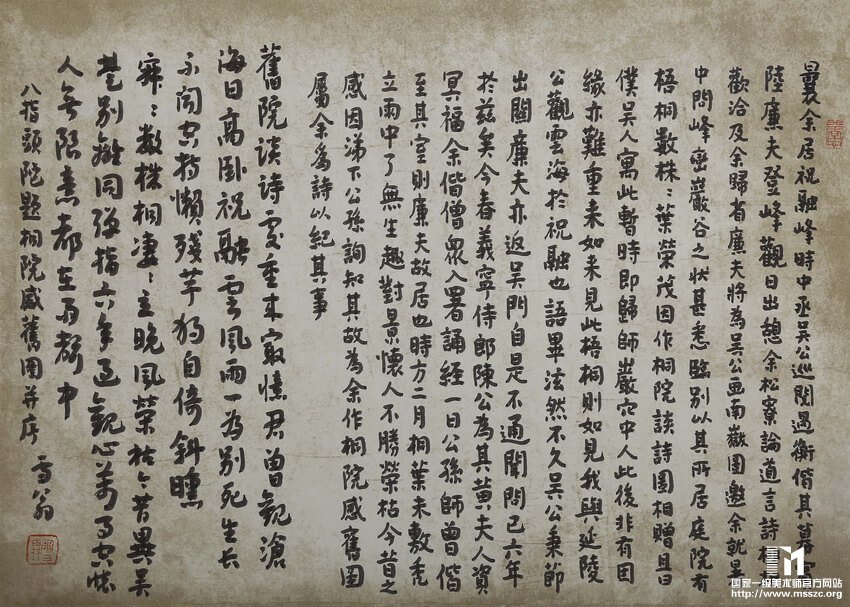 曩余居祝融峰時中丞吳公巡閱過衡偕其
陸廉夫登峰觀日出憩余松寮論道言詩
歡洽及余歸省廉夫將為吳公画南嶽圖邀余就
中問峰巒巖谷之狀甚悉臨別以其所居庭院有
梧桐數株葉榮茂因作桐院談詩圖相贈且曰
僕吳人寓此暫時即歸師巖穴中人此後非有因
緣亦難重来如来見此梧桐則如見我與延陵
公觀雲海於祝融也語畢泫然不久吳公秉節
出關廉夫亦返吳門自是不通聞問已六年
於茲矣今春義寧侍郎陳公為其黄夫人資
冥福余偕僧眾入署誦經一日公孫師曾偕
至其室則廉夫故居也時方二月桐葉未敷禿
立雨中了無生趣對景懷人不勝榮枯今昔之
感因涕下公孫詢知其故為余作桐院感舊圖
屬余為詩以紀其事
舊院談詩忍重来寂憶君曾觀滄
海日高卧祝融雲風雨一為別死生長
不聞空持懶殘芋獨自倚斜曛
寂寂數株桐凄凄立晚風榮枯今昔異吳
楚別離同彈指六年過觀心萬事空懷
人無限意都在雨聲中
八指頭陀題桐院感舊圖并序
雪翁
国家一级美术师官方网站
http://www.msszc.org